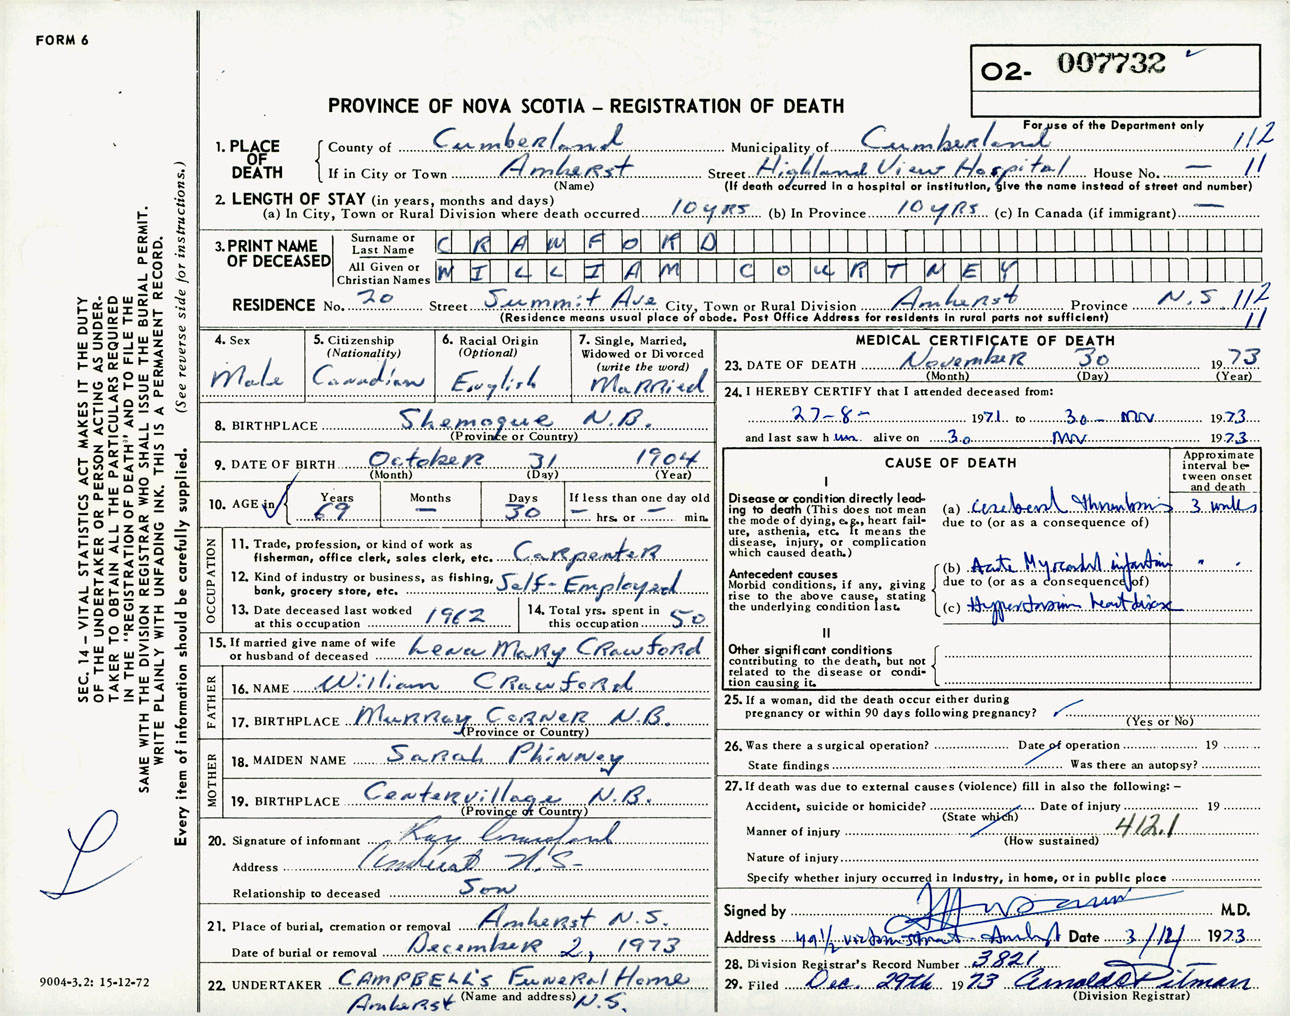 FORM 6
O2- 007732
PROVINCE OF NOVA SCOTIA – REGISTRATION OF DEATH
For use of the Department only
1. PLACE OF DEATH
County of Cumberland Municipality of Cumberland 112
If in City or Town Amherst Street Highland View Hospital House No. — 11
(Name) (If death occurred in a hospital or institution, give the name instead of street and number)
2. LENGTH OF STAY (in years, months and days)
(a) In City, Town or Rural Division where death occurred 10 yrs (b) In Province 10 yrs (c) In Canada (if immigrant) —
3. PRINT NAME OF DECEASED
Surname or Last Name CRAWFORD
All Given or Christian Names WILLIAM COURTNEY
RESIDENCE No. 20 Street Summit Ave City, Town or Rural Division Amherst Province N.S 112
(Residence means usual place of abode. Post Office Address for residents in rural parts not sufficient) 11
4. Sex
Male
5. Citizenship
(Nationality)
Canadian
6. Racial Origin
(Optional)
English
7. Single, Married,
Widowed or Divorced
(write the word)
Married
8. BIRTHPLACE Shemogue N.B.
(Province or Country)
9. DATE OF BIRTH October 31 1904
(Month) (Day) (Year)
10. AGE in
Years 69
Months —
Days 30
If less than one day old
— hrs. or — min.
OCCUPATION
11. Trade, profession, or kind of work as
fisherman, office clerk, sales clerk, etc. Carpenter
12. Kind of industry or business, as fishing,
bank, grocery store, etc. Self-Employed
13. Date deceased last worked
at this occupation 1962
14. Total yrs. spent in
this occupation 50
15. If married give name of wife
or husband of deceased Lena Mary Crawford
FATHER
16. NAME William Crawford
17. BIRTHPLACE Murray Corner N.B.
(Province or Country)
MOTHER
18. MAIDEN NAME Sarah Phinney
19. BIRTHPLACE Centervillage N.B.
(Province or Country)
20. Signature of informant Ray Crawford
Address Amherst N.S-
Relationship to deceased Son
21. Place of burial, cremation or removal Amherst N.S.
Date of burial or removal December 2, 1973
22. UNDERTAKER CAMPBELL'S Funeral Home
(Name and address)
Amherst N.S.
MEDICAL CERTIFICATE OF DEATH
23. DATE OF DEATH November 30 1973
(Month) (Day) (Year)
24. I HEREBY CERTIFY that I attended deceased from:
27-8- 1971 to 30- Nov 1973
and last saw him alive on 30 Nov 1973
CAUSE OF DEATH
Approximate interval between onset and death
I
Disease or condition directly leading to death (This does not mean
the mode of dying, e.g., heart failure, asthenia, etc. It means the
disease, injury, or complication
which caused death.)
(a) Cerebral thrombosis 3 weeks
due to (or as a consequence of)
Antecedent causes
Morbid conditions, if any, giving
rise to the above cause, stating
the underlying condition last.
(b) Acute Myocardial infarction " "
due to (or as a consequence of)
(c) Hypertension heart disease
II
Other significant conditions
contributing to the death, but not
related to the disease or condition causing it.
25. If a woman, did the death occur either during
pregnancy or within 90 days following pregnancy?
(Yes or No)
26. Was there a surgical operation? Date of operation 19
State findings Was there an autopsy?
27. If death was due to external causes (violence) fill in also the following: –
Accident, suicide or homicide? Date of injury 19
(State which)
Manner of injury 412.1
(How sustained)
Nature of injury
Specify whether injury occurred in industry, in home, or in public place
Signed by M.D.
Address 49 1/2 Victoria Street Amherst Date 3/12/ 1973
28. Division Registrar's Record Number 3821
29. Filed Dec. 29th 1973 Arnold D Pitman
(Division Registrar)
SEC. 14 – VITAL STATISTICS ACT MAKES IT THE DUTY
OF THE UNDERTAKER OR PERSON ACTING AS UNDERTAKER TO OBTAIN ALL THE PARTICULARS REQUIRED
IN THE "REGISTRATION OF DEATH" AND TO FILE THE
SAME WITH THE DIVISION REGISTRAR WHO SHALL ISSUE THE BURIAL PERMIT.
WRITE PLAINLY WITH UNFADING INK. THIS IS A PERMANENT RECORD.
Every item of information should be carefully supplied. (See reverse side for instructions.)
L
9004-3.2: 15-12-72